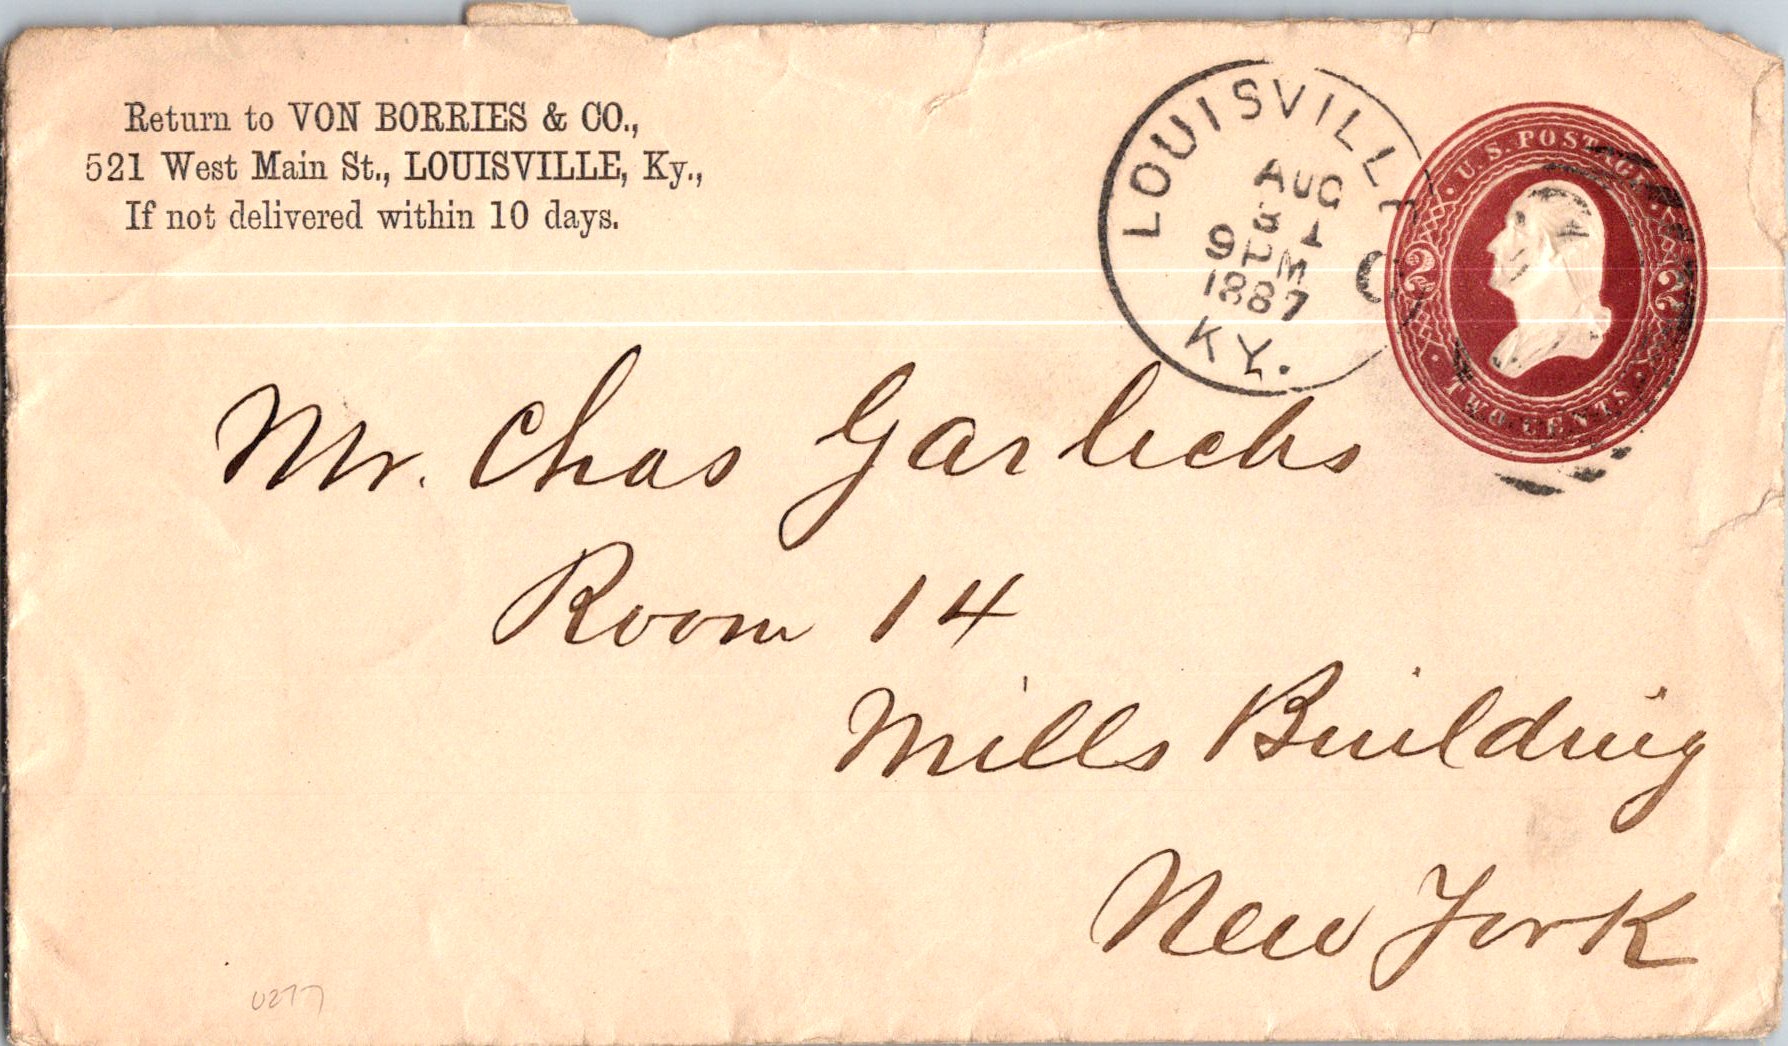 Return to VON BORRIES & CO.,
521 West Main St., LOUISVILLE, Ky.,
If not delivered within 10 days.
LOUISVILLE
AUG
31
9 PM
1887
KY.
U.S. POSTAGE
2 2
TWO CENTS
Mr. Chas Garlichs
Room 14
Mills Building
New York
U277